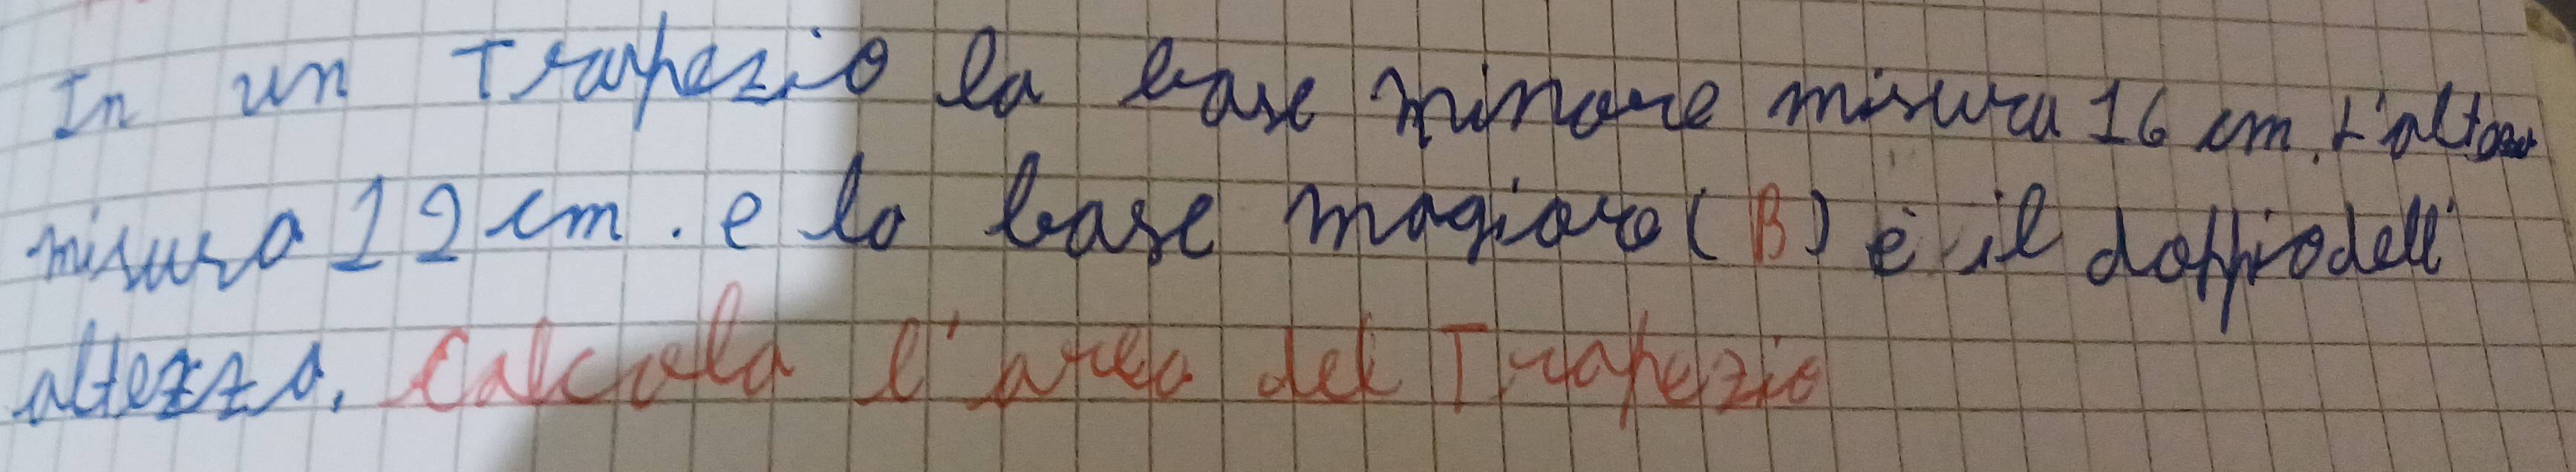 In un Trapezio la base minore misura 16 cm. L'altezza
misura 12 cm. e la base magiore (B) è il doppio dell'
altezza. Calcola l'area del Trapezio